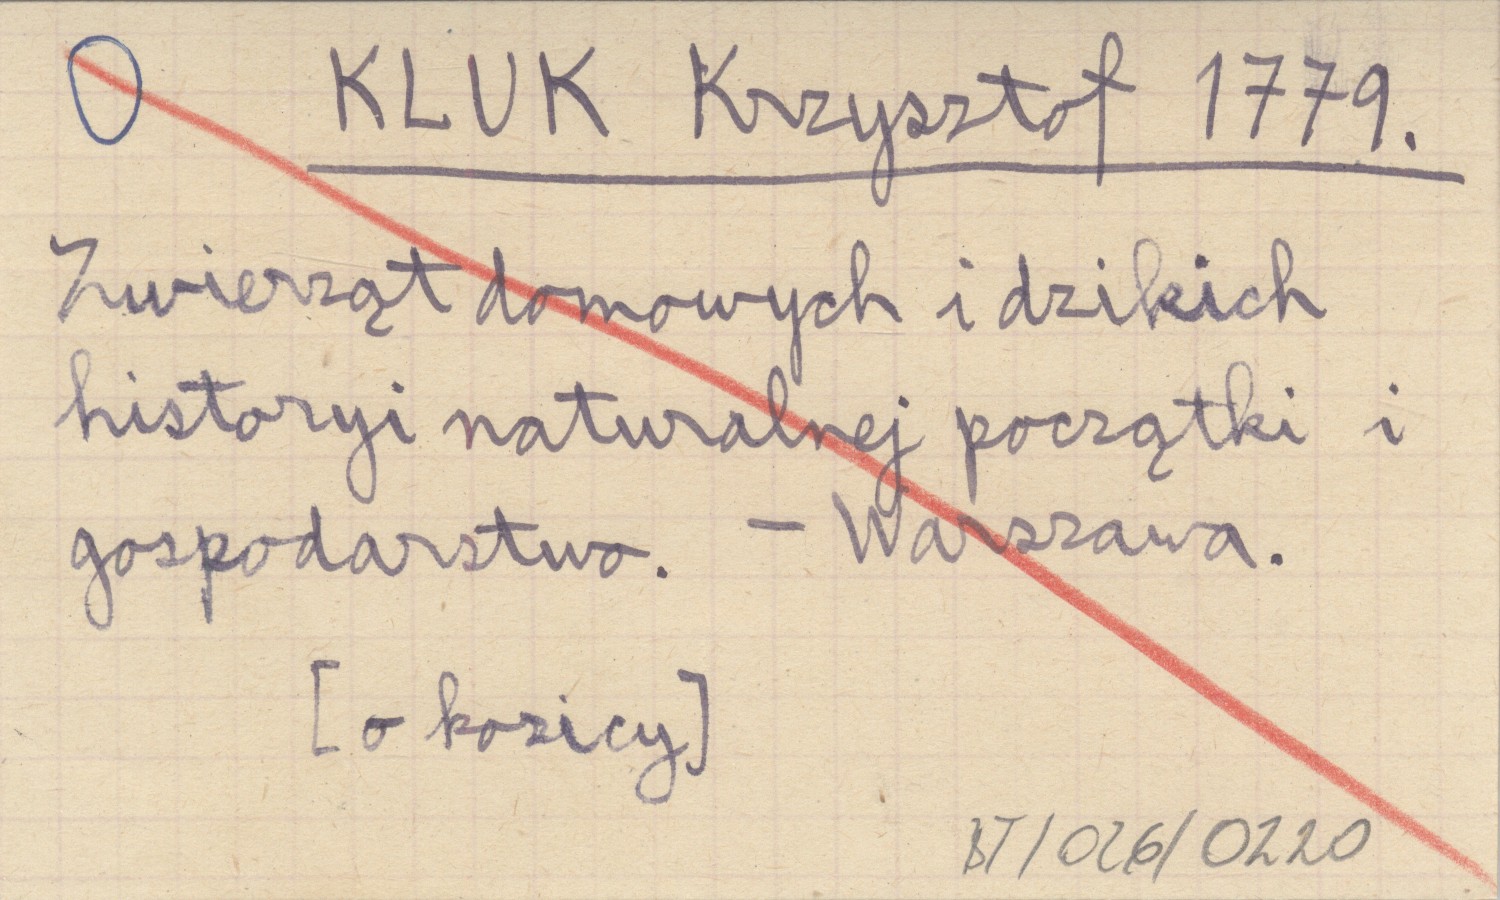 KLUK Krzysztof 1779.
Zwierząt domowych i dzikich
historyi naturalnej początki i
gospodarstwo. — Warszawa.
[o kozicy]
BT/026/0220